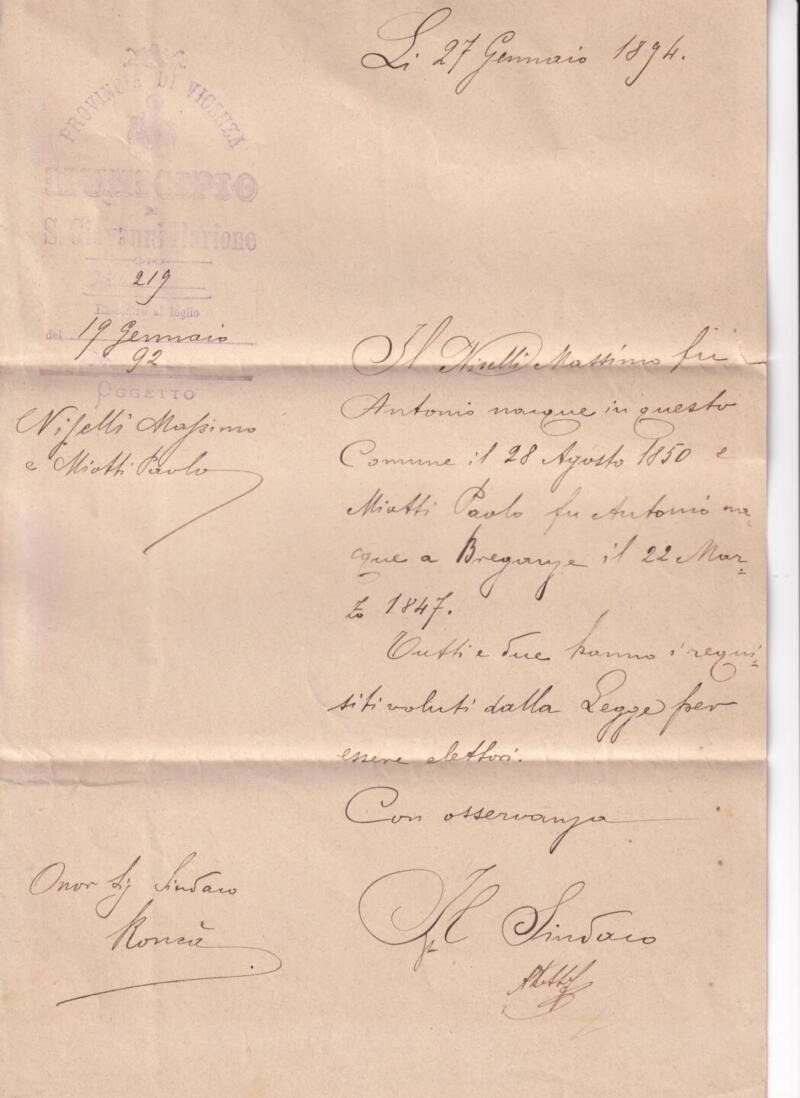 Li 27 Gennaio 1894.
PROVINCIA DI VICENZA
MUNICIPIO
DI
S. Giovanni Ilarione
N. 219
Riscontro al foglio
del 19 Gennaio
92
OGGETTO
Niselli Massimo
e Miotti Paolo
Il Niselli Massimo fu
Antonio nacque in questo
Comune il 28 Agosto 1850 e
Miotti Paolo fu Antonio na=
cque a Breganze il 22 Mar=
zo 1847.
Tutti e due hanno i requi=
siti voluti dalla Legge per
essere elettori.
Con osservanza
Onor Sig Sindaco
Roncà
Il Sindaco